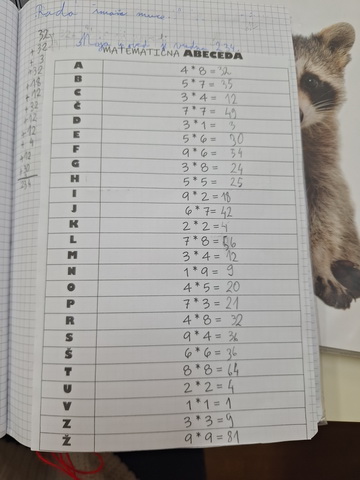 Rada
MATEMATIČNA ABECEDA
A 4 * 8 = 32
B 5 * 7 = 35
C 3 * 4 = 12
Č 7 * 7 = 49
D 3 * 1 = 3
E 5 * 6 = 30
F 9 * 6 = 54
G 3 * 8 = 24
H 5 * 5 = 25
I 9 * 2 = 18
J 6 * 7 = 42
K 2 * 2 = 4
L 7 * 8 = 56
M 3 * 4 = 12
N 1 * 9 = 9
O 4 * 5 = 20
P 7 * 3 = 21
R 4 * 8 = 32
S 9 * 4 = 36
Š 6 * 6 = 36
T 8 * 8 = 64
U 2 * 2 = 4
V 1 * 1 = 1
Z 3 * 3 = 9
Ž 9 * 9 = 81
32
+ 32
+ 3
+ 32
+ 18
+ 12
+ 32
+ 12
+ 12
+ 4
+ 12